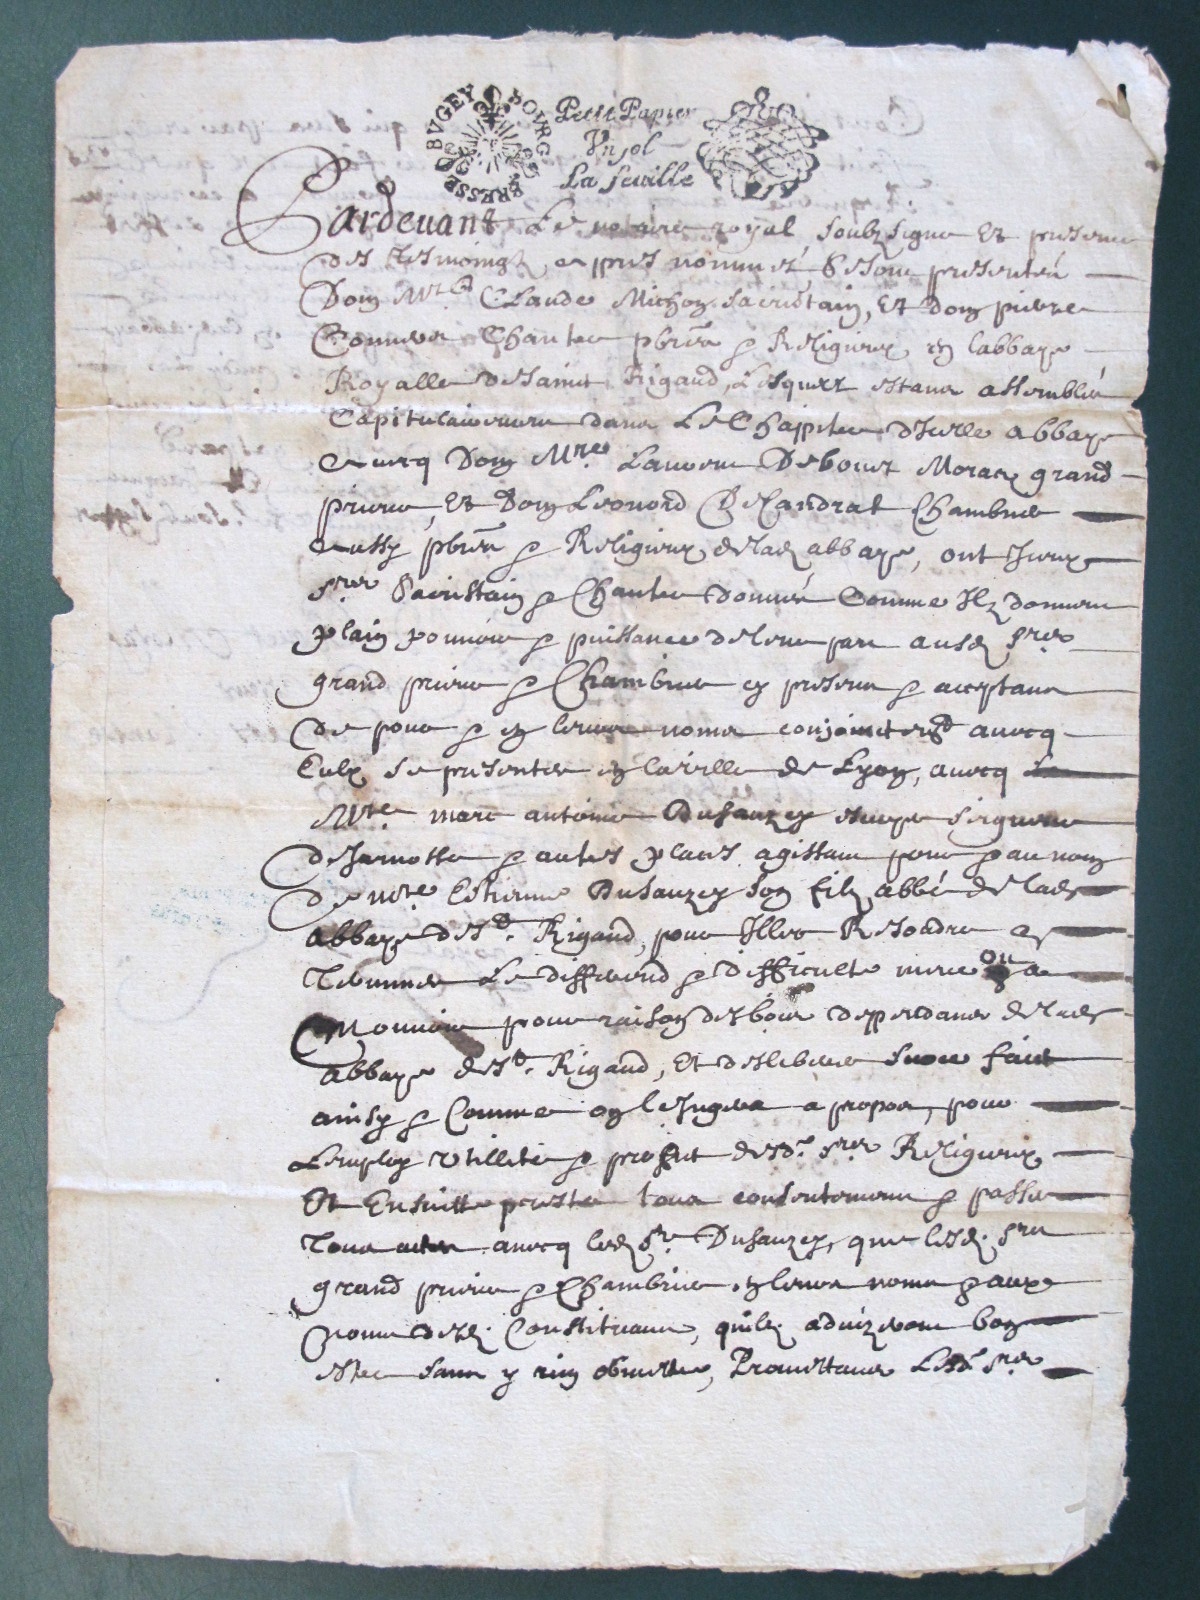 BOVRG BRESSE BVGEY
Petit Papier
Un sol
La feuille
Pardevant Le notaire royal soubzsigne Et presence
des tesmoingz apres nommez se sont presentés
Dom Mre Claude Michon sacristain, Et dom pierre
Chantre pbres & Religieux en labbaye
Royalle de saint Rigaud, Lesquelz estans assemblés
Capitulairement dans Le Chapitre d'Icelle abbaye
avecq Dom Mre Laurens Debouet grand
prieur, Et Dom Leonord Dechandrat Chambrier
aussy pbres & Religieux de lad abbaye, ont Iceux
srs Sacristain & Chantre donné Comme Ilz donnent
plain pouvoir & puissance de leur part ausd srs
grand prieur & Chambrier en presence & acceptans
de pour & en leurs noms conjoinctement avecq
Eulx se presenter en la ville de Lyon, avecq
Mre marc antoine Dusauzey escuyer seigneur
de Jarnosse & autres places agissant pour & au nom
de Mre Estienne Dusauzey son filz abbé de lad
abbaye de St Rigaud, pour Illec Resoudre &
Terminer Le differend & difficulté meue ou a
Mouvoir pour raison des bois deppendans de lad
abbaye de St Rigaud, Et deslivrer faict
ainsy & Comme on le Jugera a propos, pour
L'employ utillité & proffit desd. srs Religieux
Et Ensuitte prester tous consentemens & passer
Tous actes avecq led sr Dusauzey, que lesd. srs
grand prieur & Chambrier en leurs noms & aux
noms desd. Constituans, quilz adviseront bon
estre sans y rien obmettre, Promettans Lesd. srs